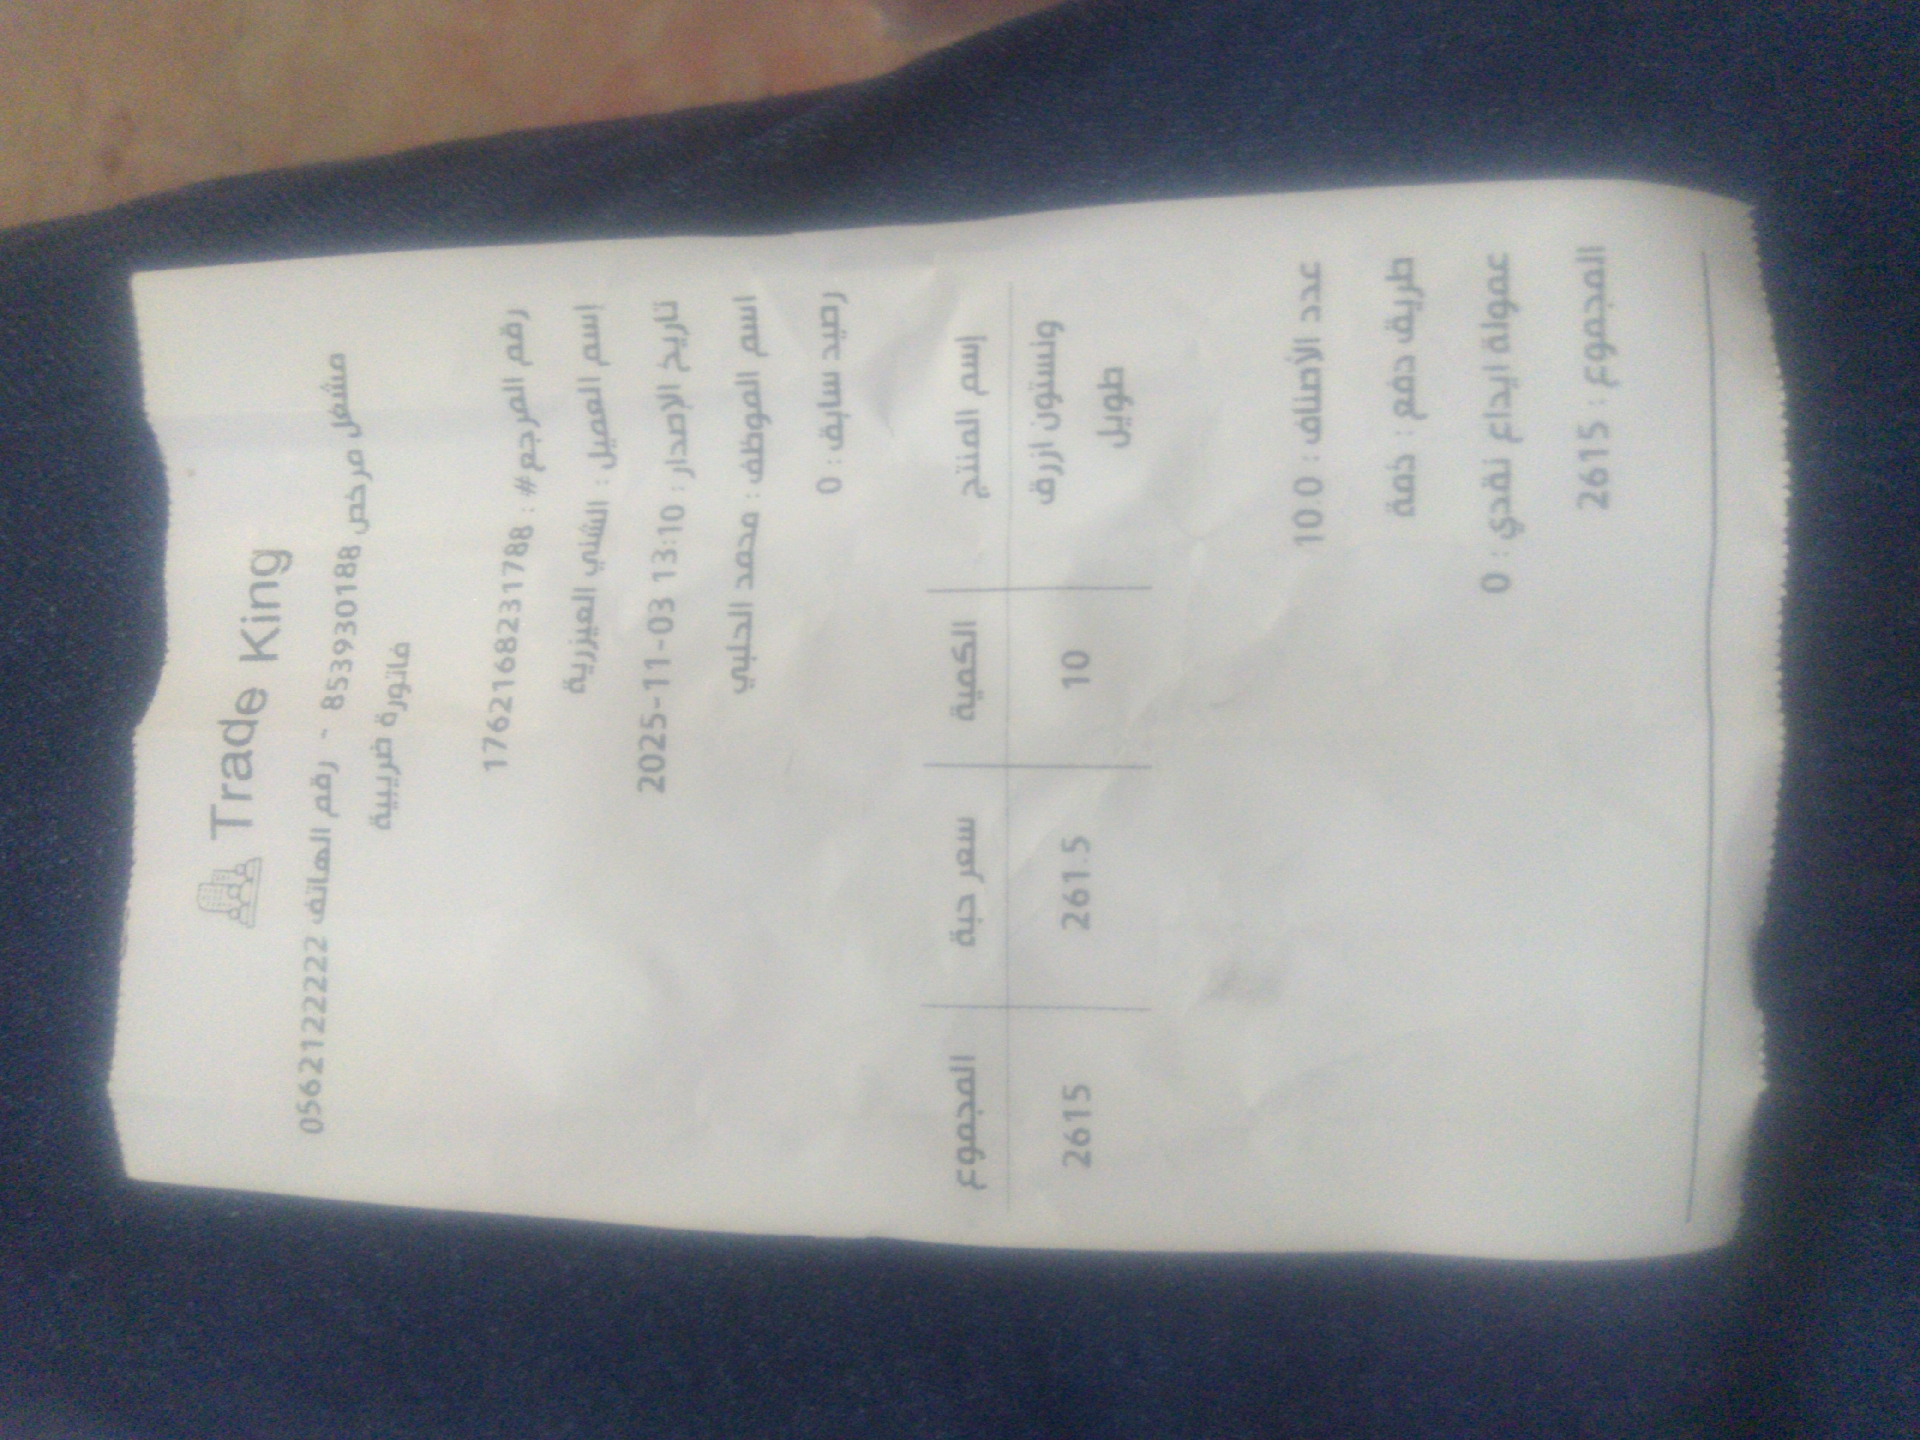 Trade King
مشغل مرخص 853930188 - رقم الهاتف 0562122222
فاتورة ضريبية
رقم المرجع# : 1762168231788
إسم العميل : الشني العيزرية
تاريخ الإصدار : 2025-11-03 13:10
اسم الموظف : محمد الحلبي
رصيد سابق : 0
إسم المنتج الكمية سعر حبة المجموع
ونستون ازرق 10 261.5 2615
طويل
عدد الأصناف : 10.0
طريق دفع : ذمة
عمولة ايداع نقدي : 0
المجموع : 2615